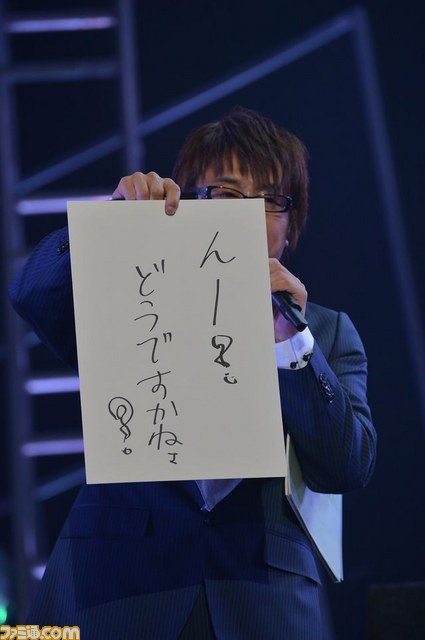 んー?
どうですかねぇ
?
ファミ通.com